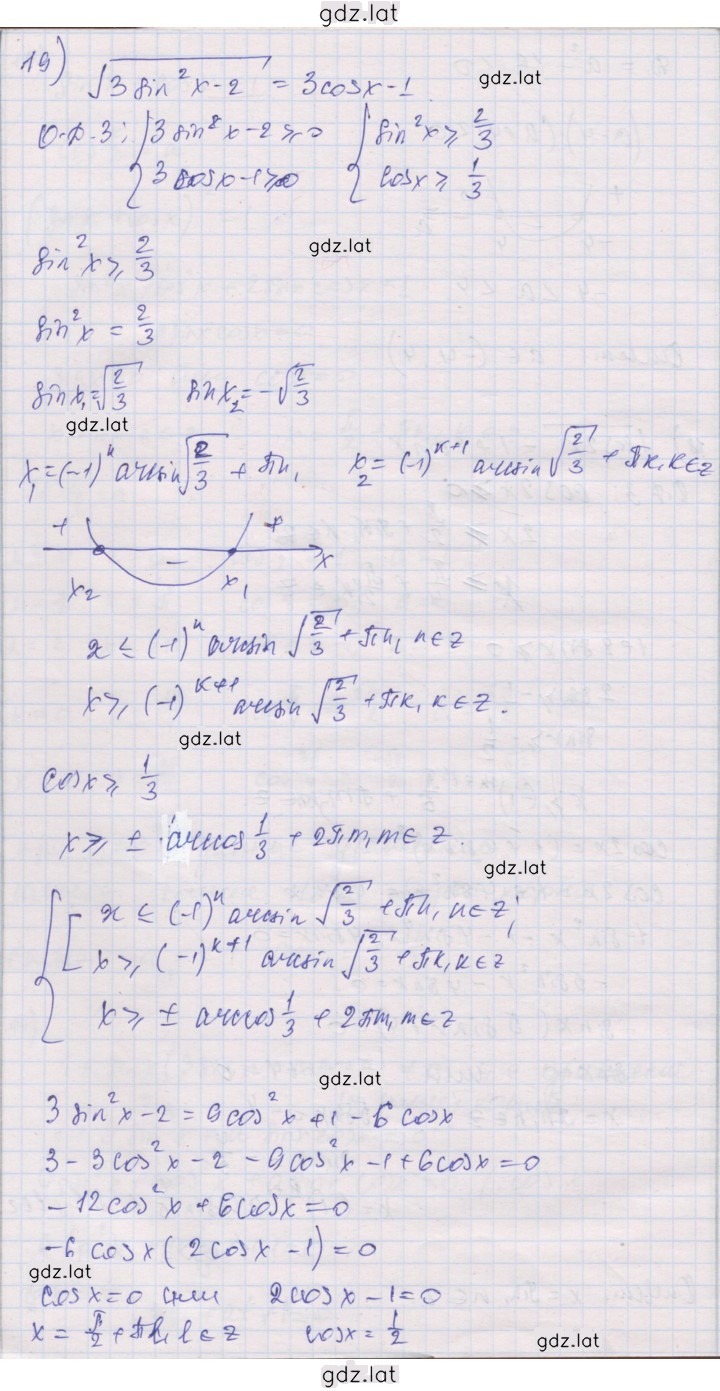 gdz.lat
19) √(3 sin²x-2) = 3cosx-1
gdz.lat
О.Д.З: { 3 sin²x-2≥0 { sin²x≥ 2/3
3 cosx-1≥0 cosx≥ 1/3
gdz.lat
sin²x≥ 2/3
sin²x = 2/3
sinx₁=√(2/3) sinx₂=-√(2/3)
gdz.lat
x₁=(-1)ⁿ arcsin√(2/3) + πn, x₂= (-1)ᵏ⁺¹ arcsin√(2/3) + πk, k∈z
+ - + x
x₂ x₁
x ≤ (-1)ⁿ arcsin √(2/3) + πn, n∈z
x≥ (-1)ᵏ⁺¹ arcsin √(2/3) + πk, k∈z.
gdz.lat
cosx≥ 1/3
x≥ ± arccos 1/3 + 2πm, m∈z.
gdz.lat
{ [ x ≤ (-1)ⁿ arcsin √(2/3) + πn, n∈z;
x≥ (-1)ᵏ⁺¹ arcsin √(2/3) + πk, k∈z
x≥ ± arccos 1/3 + 2πm, m∈z
gdz.lat
3 sin²x-2 = 9cos²x+1-6cosx
3-3cos²x-2-9cos²x-1+6cosx=0
-12cos²x+6cosx=0
-6 cosx(2cosx-1)=0
gdz.lat
cosx=0 или 2cosx-1=0
x = π/2 + πl, l∈z cosx= 1/2
gdz.lat
gdz.lat